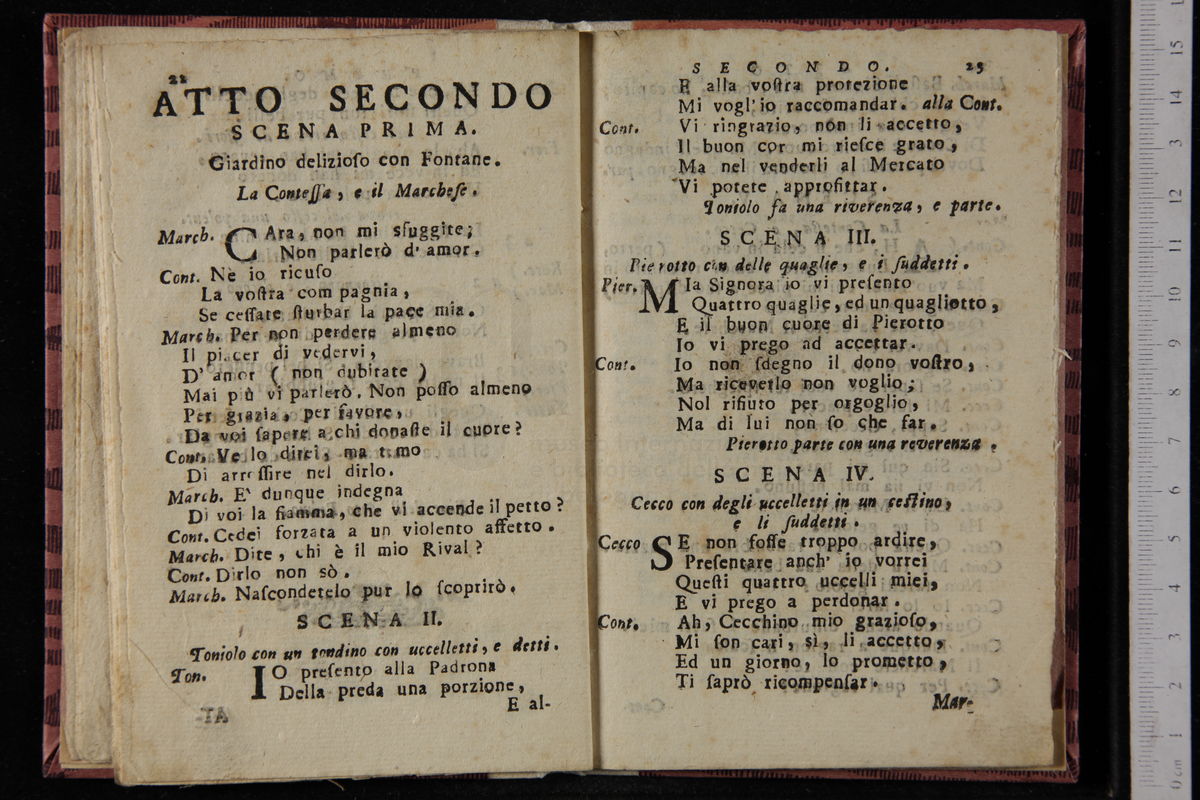 22
ATTO SECONDO
SCENA PRIMA.
Giardino delizioſo con Fontane.
La Conteſſa, e il Marcheſe.
March. CAra, non mi sfuggite;
Non parlerò d'amor.
Cont. Nè io ricuſo
La voſtra compagnia,
Se ceſſate ſturbar la pace mia.
March. Per non perdere almeno
Il piacer di vedervi,
D'amor ( non dubitate )
Mai più vi parlerò. Non poſſo almeno
Per grazia, per favore,
Da voi ſapere a chi donaſte il cuore?
Cont. Ve lo direi, ma temo
Di arroſſire nel dirlo.
March. E' dunque indegna
Di voi la fiamma, che vi accende il petto?
Cont. Cedei forzata a un violento affetto.
March. Dite, chi è il mio Rival?
Cont. Dirlo non sò.
March. Naſcondetelo pur lo ſcoprirò.
SCENA II.
Toniolo con un tondino con uccelletti, e detti.
Ton. IO preſento alla Padrona
Della preda una porzione,
E al-
SECONDO. 23
E alla voſtra protezione
Mi vogl'io raccomandar. alla Cont.
Cont. Vi ringrazio, non li accetto,
Il buon cor mi rieſce grato,
Ma nel venderli al Mercato
Vi potete approfittar.
Toniolo fa una riverenza, e parte.
SCENA III.
Pierotto con delle quaglie, e i ſuddetti.
Pier. MIa Signora io vi preſento
Quattro quaglie, ed un quagliotto,
E il buon cuore di Pierotto
Io vi prego ad accettar.
Cont. Io non ſdegno il dono voſtro,
Ma riceverlo non voglio;
Nol rifiuto per orgoglio,
Ma di lui non ſo che far.
Pierotto parte con una reverenza.
SCENA IV.
Cecco con degli uccelletti in un ceſtino,
e li ſuddetti.
Cecco SE non foſſe troppo ardire,
Preſentare anch' io vorrei
Queſti quattro uccelli miei,
E vi prego a perdonar.
Cont. Ah, Cecchino mio grazioſo,
Mi ſon cari, sì, li accetto,
Ed un giorno, lo prometto,
Ti ſaprò ricompenſar.
Mar-
0 cm 1 2 3 4 5 6 7 8 9 10 11 12 13 14 15